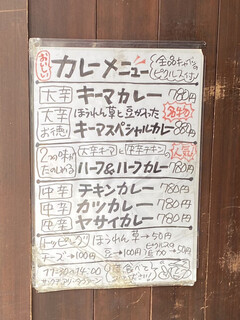 おいしい! カレーメニュー 全品キャベツのピクルス付
大辛 キーマカレー 780円
大辛 ほうれん草と豆が入った 名物
お徳 キーマスペシャルカレー 880円
2つの味が 大辛キーマと中辛チキン 人気
たのしめる ハーフ&ハーフカレー 780円
中辛 チキンカレー 780円
中辛 カツカレー 780円
中辛 ヤサイカレー 780円
トッピング ほうれん草→50円
チーズ→100円 豆→100円 ピクルス 追加→50円
11:30〜14:00
食べてください